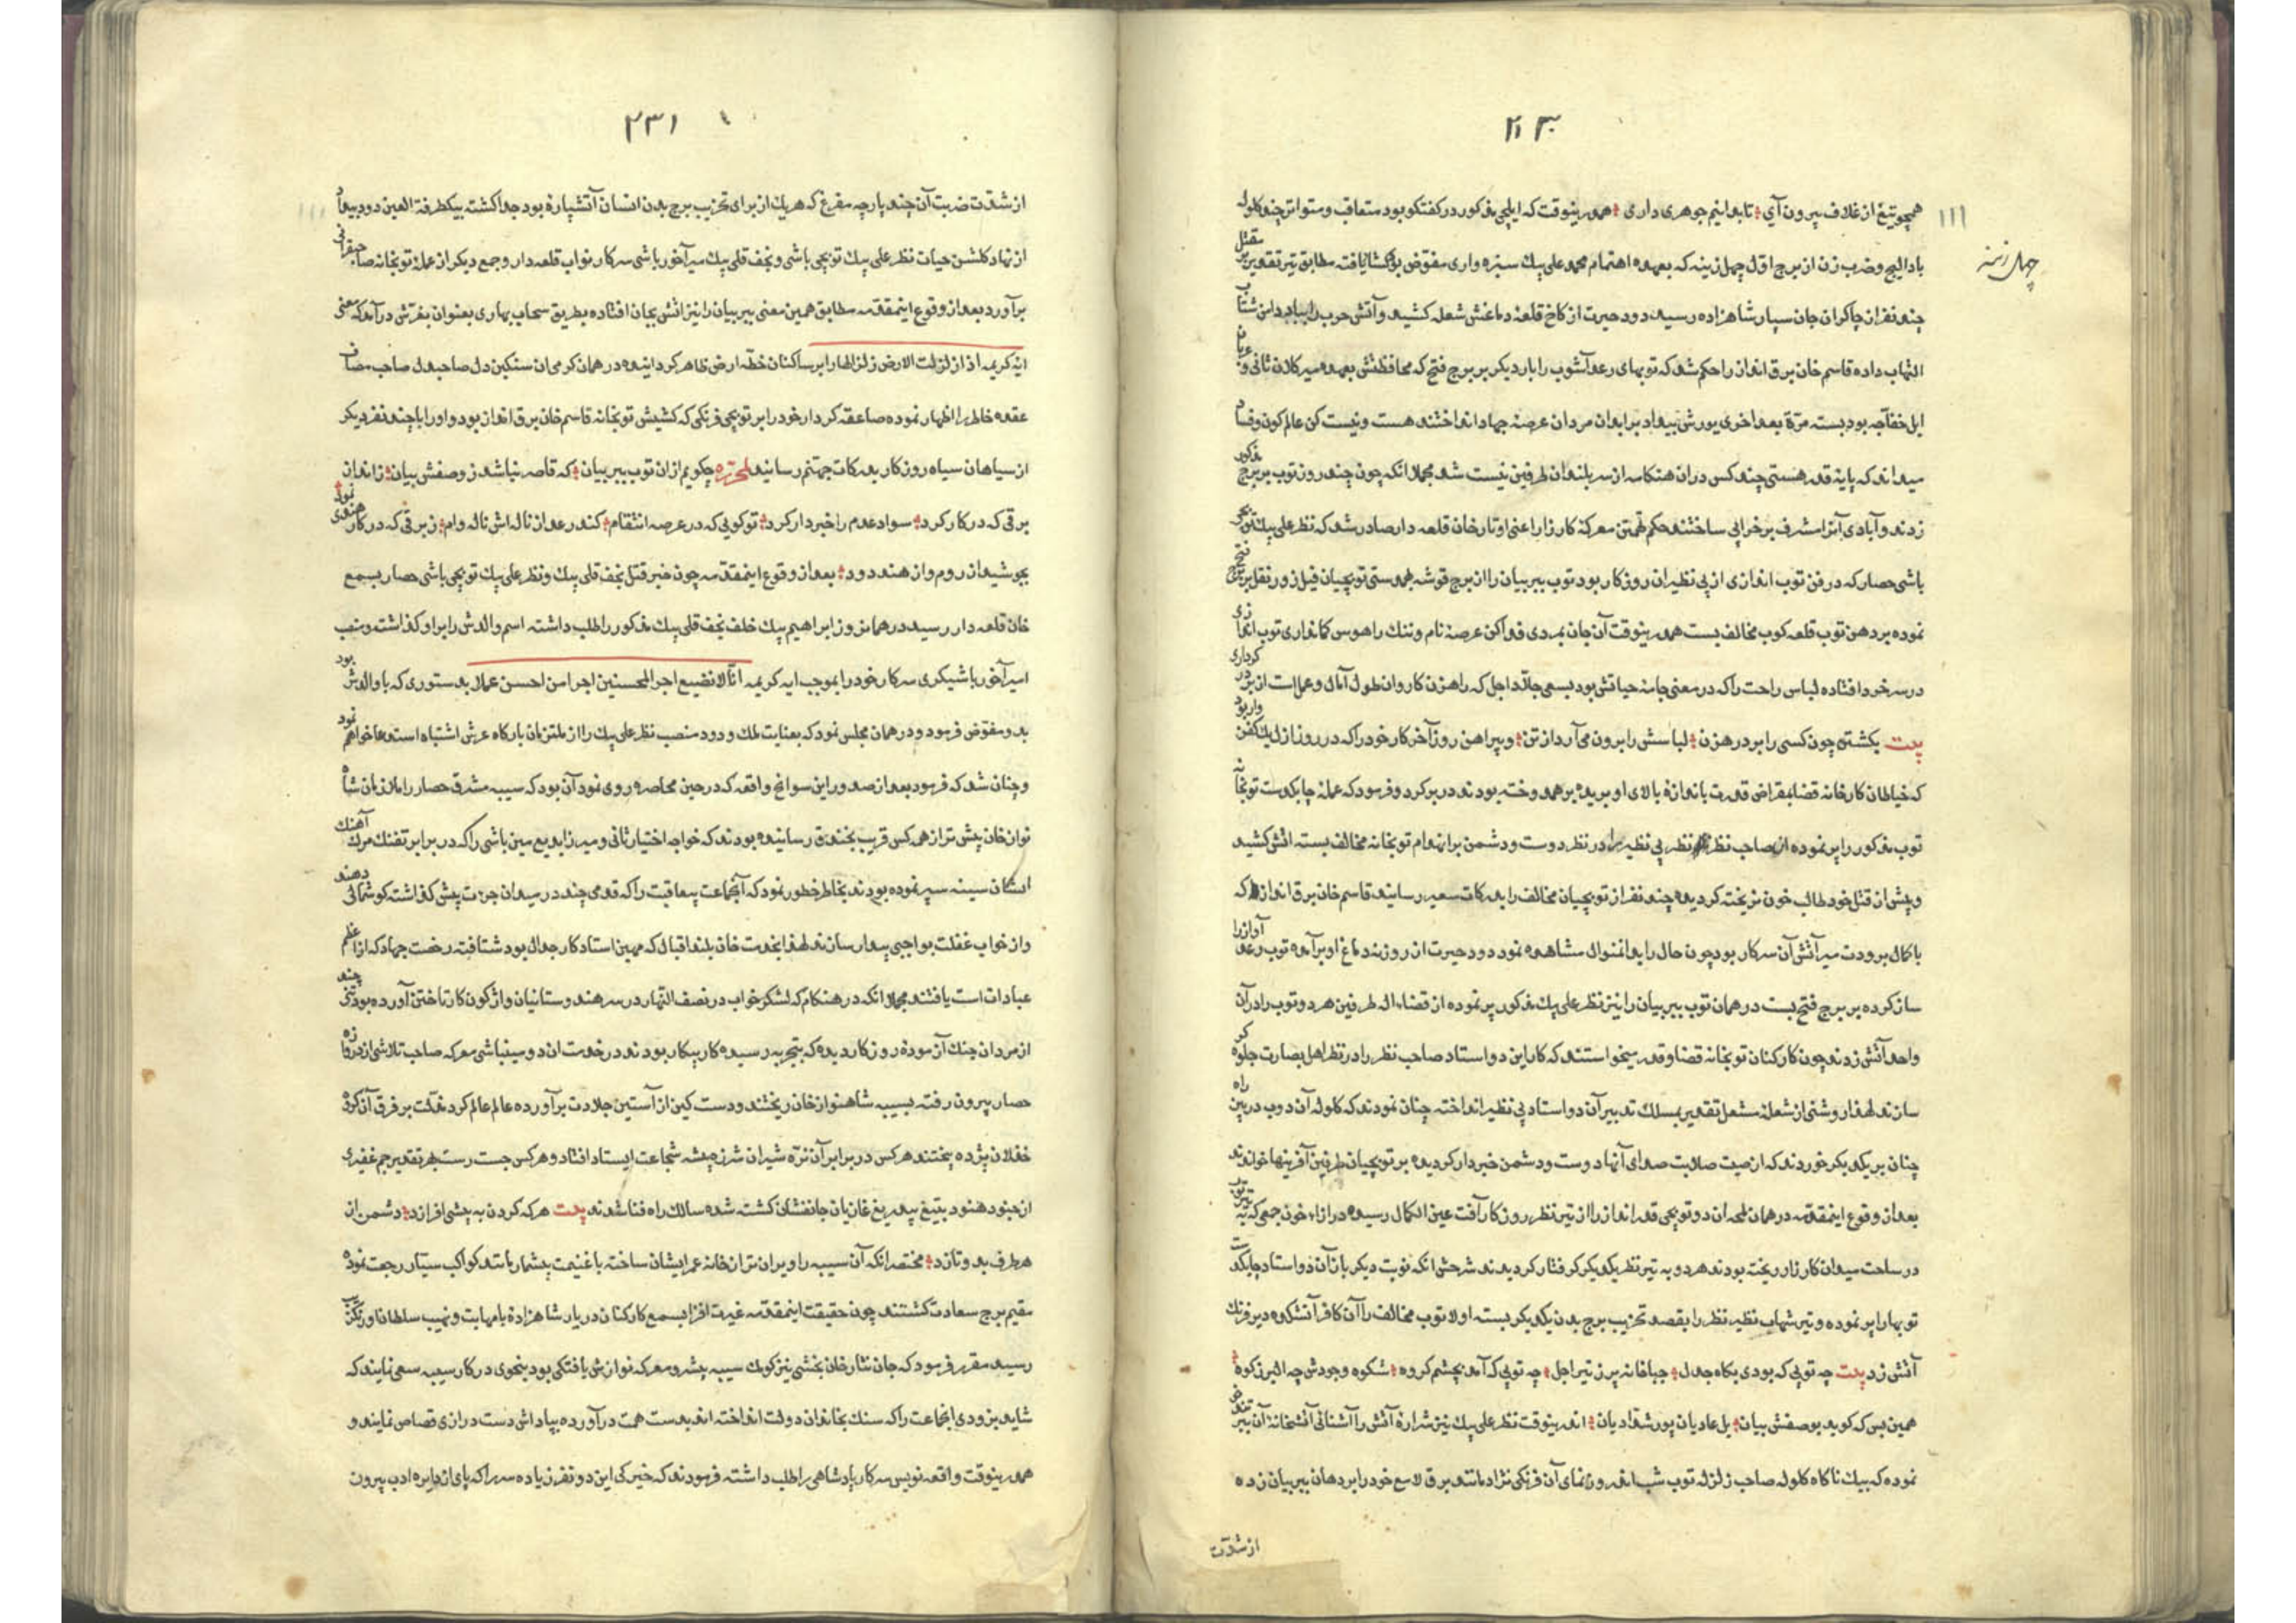 ۲۳۰
۱۱۱
چهل زینه
همچو تیغ از غلاف بیرون آی تا بدانیم جوهری داری همدرینوقت که ایلچی مذکور در کفتکو بود متعاقب و متواتر چند کلوله
بادالیج و ضرب زن از برج اول چهل زینه که بعهده اهتمام محمد علی بیك سبزواری مفوض بود کشایافته مطابق تیر تقدیر بر مقتل
چند نفر از چاکران جان سپار شاهزاده رسید دود حیرت از کاخ قلعهٔ دماغش شعله کشید و آتش حرب را بباد دامن شتاب
التهاب داده قاسم خان برق انداز را حکم شد که توبهای رعد آشوب را بار دیکر بر برج فتح که محافظتش بعهده میر کلان ثانی و
ایل خفاجه بود بسته مرة بعد اخری یورش بیداد بر ابدان مردان عرصهٔ جهاد انداختند هست و نیست کن عالم کون و فساد
میداند که پایهٔ قدر هستی چند کس در ان هنکامه از سربلندان طرفین نیست شد مجملا انکه چون چند روز توب بر برج مذکور
زدند و آبادی آنرا مشرف بر خرابی ساختند حکم تهمتن معرکهٔ کارزار اعنی اوتار خان قلعه دار صادر شد که نظر علی بیك توبچی
باشی حصار که در فن توب اندازی از بی نظیران روزکار بود توب ببر بیان را از برج قوشه بهمدستی توبچیان فیل زور نقل بر برج فتح
نموده بر دهن توب قلعه کوب مخالف بست همدرینوقت آن جان بمردی فدا کن عرصهٔ نام و ننك را هوس کمانداری توب اندازی
در سر خود افتاده لباس راحت را که در معنی جامهٔ حیاتش بود بسعی جلاد اجل که راهزن کاروان طول آمال و عمل است از بر در
بیت بکشتی چون کسی را بر در هزن لباسش را برون می آرد از تن و پیراهن روز آخر کار خود را که در روز ازل یك کفن
که خیاطان کارخانه قضا بمقراض قدرت باندازهٔ بالای او بریده بر هم دوخته بودند در بر کرد و فرمود که عملهٔ چابکدست توبخانه
توب مذکور را پر نموده از صاحب نظر نظر بی نظیر را در نظر دوست و دشمن بر انهدام توبخانه مخالف بسته اتش کشید
و پیش از قتل خود طالب خون نریخته کردیده چند نفر از توبچیان مخالف را بدرکات سعیر رسانید قاسم خان برق انداز که
با کمال برودت میر آتش آن سرکار بود چون حال را بدانمنوال مشاهده نمود دود حیرت از روزنهٔ دماغ او برآمده توب رعد آواز را
ساز کرده بر برج فتح بست در همان توب ببر بیان را نیز نظر علی بیك مذکور پر نموده از قضاء اله طرفین هر دو توب را در آن
واحد آتش زدند چون کارکنان توبخانه قضا و قدر میخواستند که کار این دو استاد صاحب نظر را در نظر اهل بصارت جلوه کر
سازند لهذا روشنی از شعلهٔ مشعل تقدیر بمسلك تدبیر آن دو استاد بی نظیر انداخته چنان نمودند که کلوله آن دو توب در بین راه
چنان بر یکدیکر خوردند که از صیت صلابت صدای آنها دوست و دشمن خبردار کردیده بر توبچیان طرفین آفرینها خواندند
بعد از وقوع اینمقدمه در همان لمحه ان دو توبچی قدر انداز را از تیر نظر روزکار آفت عین الکمال رسیده در ازاء خون جمعی که به تیر توب
در ساحت میدان کارزار ریخته بودند هر دو به تیر نظر یکدیکر کرفتار کردیدند شرحش انکه نوبت دیکر باز آن دو استاد چابکدست
توبها را پر نموده و تیر شهاب نظیر نظر را بقصد تخریب برج بدن یکدیکر بسته اولا توب مخالف را آن کافر آتشکدهٔ دیر فرنك
آتش زد بیت چه توبی که بودی بکاه جدل جباخانه پر ز تیر اجل چه توبی که آمد بچشم کروه شکوه وجودش چه البرز کوه
همین بس که کوید بوصفش بیان یل عادیان پور شدادیان اندرینوقت نظر علی بیك نیز شرارهٔ آتش را آشنائی آتشخانهٔ آن ببر
نموده که بیك ناکاه کلوله صاحب زلزله توب شب انداز و روزنمای آن فرنکی نژاد مانند برق لامع خود را بر دهان ببر بیان زده
از شدت
۲۳۱
۱۱۱
از شدت ضربت آن چند پارچه مفرغ که هر یك از برای تخریب برج بدن انسان آتشپارهٔ بود جدا کشته بیکطرفة العین دود بیداد
از نهاد کلشن حیات نظر علی بیك توبچی باشی و نجف قلی بیك میر آخور باشی سرکار نواب قلعه دار و جمع دیکر از عملهٔ توبخانه صاحبقرانی
برآورد بعد از وقوع اینمقدمه مطابق همین معنی ببر بیان را نیز اتش بجان افتاده بطریق سحاب بهاری بعنوان بغرش در آمد که معنی
ایه کریمه اذا زلزلت الارض زلزالها را بر ساکنان خطه ارض ظاهر کردانیده در همان کرمی ان سنکین دل صاحبدل صاحب مصاف
عقده خاطر را اظهار نموده صاعقه کردار خود را بر توبچی فرنکی که کشیش توبخانه قاسم خان برق انداز بود و او را با چند نفر دیکر
از سیاهان سیاه روزکار بدرکات جهنم رسانید لمحرره چکویم از ان توب ببر بیان که قاصر نباشد ز وصفش بیان ز اندان
برقی که در کار کرد سواد عدم را خبردار کرد تو کویی که در عرصه انتقام کند رعد از ناله اش ناله وام ز برقی که در کار هندی نمود
بجوشید از روم و از هند دود بعد از وقوع اینمقدمه چون خبر قتل نجف قلی بیك و نظر علی بیك توبچی باشی حصار بسمع
خان قلعه دار رسید در همانروز ابراهیم بیك خلف نجف قلی بیك مذکور را طلب داشته اسم والدش را بر او کذاشته و منصب
امیر آخور باشیکری سرکار خود را بموجب ایه کریمه انا لا نضیع اجر المحسنین اجرا من احسن عملا بدستوری که با والدش بود
بدو مفوض فرمود و در همان مجلس نمود که بعنایت ملك ودود منصب نظر علی بیك را از ملتزمان بارکاه عرش اشتباه استدعا خواهم نمود
و چنان شد که فرمود بعد از صدور این سوانح واقعه که در حین محاصره روی نمود آن بود که سیبه مشرق حصار را ملازمان شاه
نواز خان پیش تر از همه کس قریب بخندق رسانیده بودند که خواجه اختیار ثانی و میرزا بدیع مین باشی را که در برابر تفنك مرك آهنك
ایشان سینه سپر نموده بودند بخاطر خطور نمود که آنجماعت بیعاقبت را که قدمی چند در میدان جرءت پیش کذاشته کوشمالی دهند
و از خواب غفلت بواجبی بیدار سازند لهذا بخدمت خان بلند اقبال که مهین استاد کار جدال بود شتافته رخصت جهاد که از اعظم
عبادات است یافتند مجملا انکه در هنکام که لشکر خواب در نصف النهار در سر هندوستانیان واژکون کار تاختن آورده بود تنی چند
از مردان جنك آزمودهٔ روزکار دیده که بتجربه رسیده کار پیکار بودند در خدمت ان دو مینباشی معرکه صاحب تلاشی از دروازه
حصار بیرون رفته بسیبه شاهنواز خان ریختند و دست کین از آستین جلادت برآورده عالم عالم کرد مذلت بر فرق آن کروه
خذلان پژده بیختند هر کس در برابر آن نره شیران شرزه بیشه شجاعت ایستاد افتاد و هر کس جست رست بهر تقدیر جم غفیری
از جنود هنود بتیغ بیدریغ غازیان جانفشان کشته شده سالك راه فنا شدند بیت هر که کردن به بیشی افرازد دشمن از
هر طرف بدو تازد مختصر انکه آن سیبه را ویران تر از خانه عمر ایشان ساخته با غنیمت بیشمار مانند کواکب سیار رجعت نموده
مقیم برج سعادت کشتند چون حقیقت اینمقدمه غیرت افزا بسمع کارکنان دربار شاهزادهٔ با مهابت و نهیب سلطان اورنکزیب
رسید مقرر فرمود که جان نثار خان بخشی نیز کومك سیبه پیشرو معرکه نوازش یافتکی بود بنحوی در کار سیبه سعی نمایند که
شاید بزودی انجماعت را که سنك بخاندان دولت انداخته اند بدست همت در آورده بپاداش دست درازی قصاص نمایند و
همدرینوقت واقعه نویس سرکار پادشاهی را طلب داشته فرمودند که خیرکی این دو نفر زیاده سر را که پای از دایره ادب بیرون